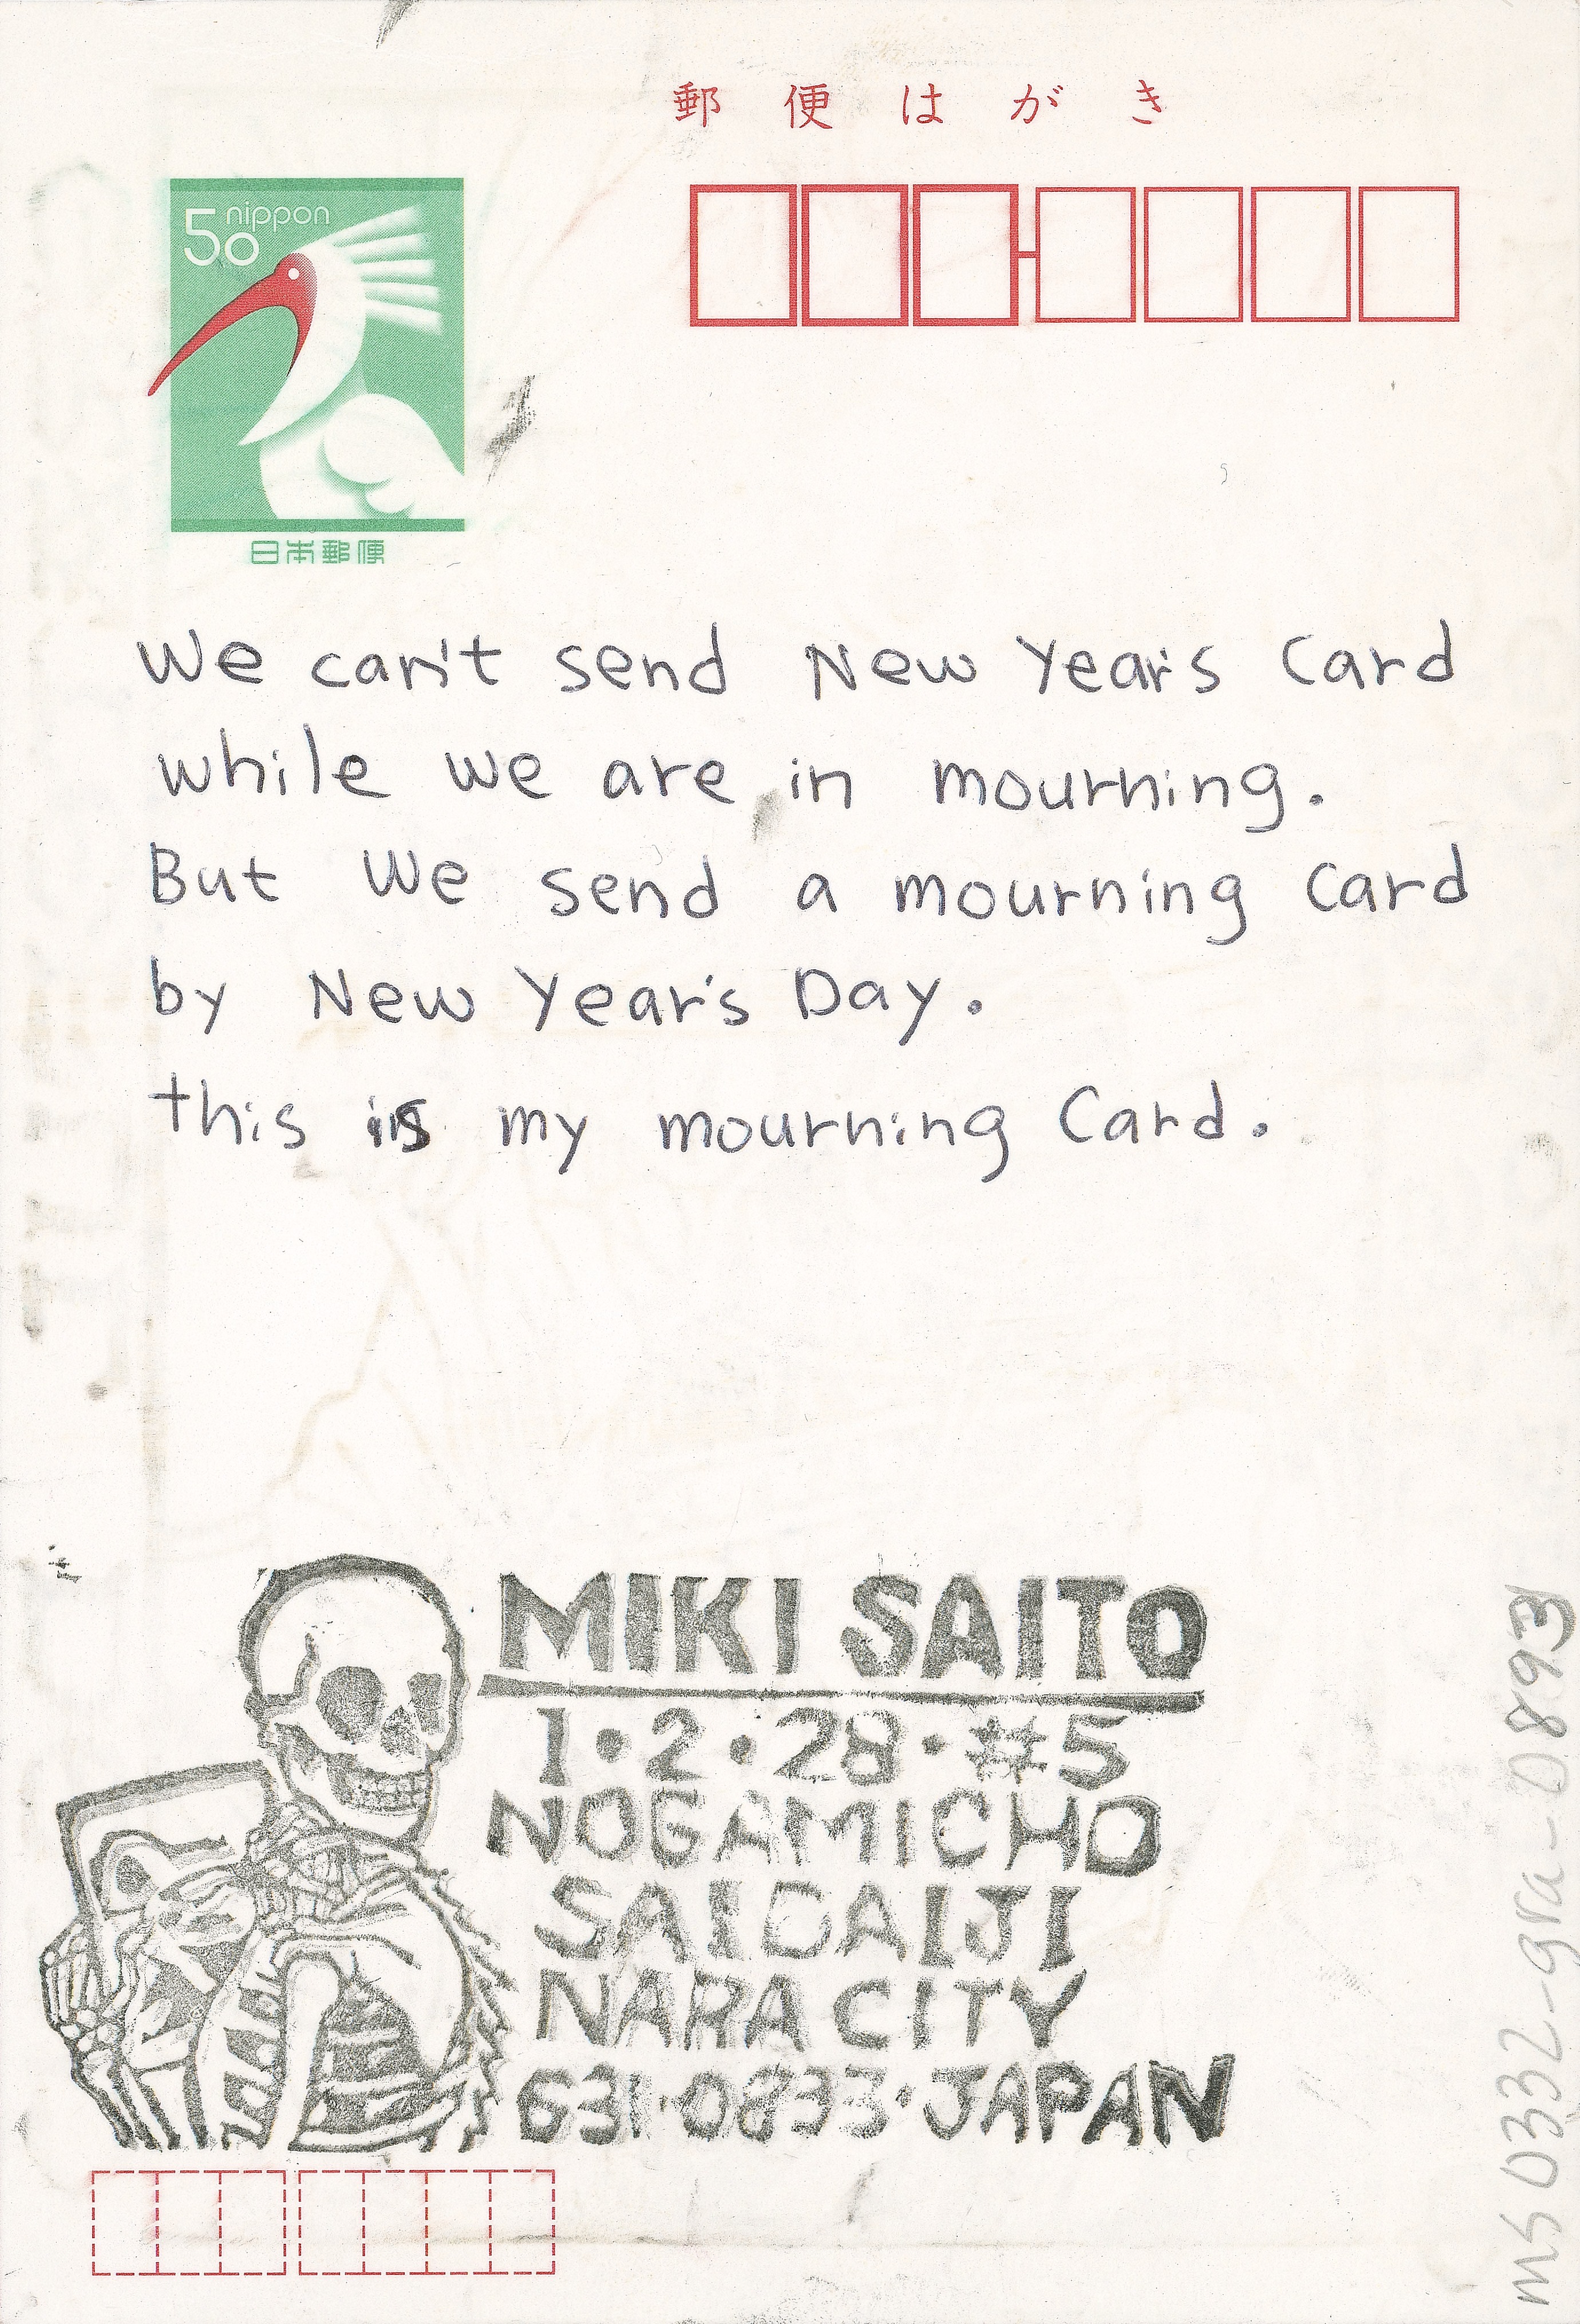 郵便はがき
50 nippon
日本郵便
We can't send New Year's Card
while we are in mourning.
But We send a mourning Card
by New Year's Day.
this is my mourning Card.
MIKI SAITO
1・2・28・#5
NOGAMICHO
SAIDAIJI
NARA CITY
631・0833・JAPAN
ms0332-gra-0893